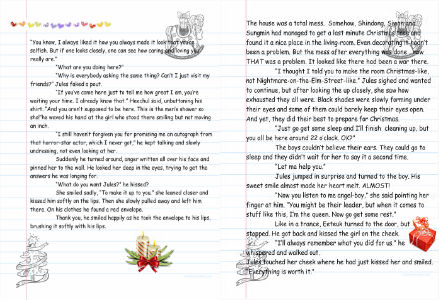 "You know, I always liked it how you always made it look that you're
selfish. But if one looks closely, one can see how caring and loving you
really are."
"What are you doing here?"
"Why is everybody asking the same thing? Can't I just visit my
friends?" Jules faked a pout.
"If you've came here just to tell me how great I am, you're
wasting your time. I already know that." Heechul said, unbuttoning his
shirt. "And you aren't supposed to be here. This is the men's shower so
she waved his hand at the girl who stood there smiling but not moving
an inch.
"I still haven't forgiven you for promising me an autograph from
that horror-star actor, which I never got," he kept talking and slowly
undressing, not even looking at her.
Suddenly he turned around, anger written all over his face and
pinned her to the wall. He looked her deep in the eyes, trying to get the
answers he was longing for.
"What do you want Jules?" he hissed?
She smiled sadly, "To make it up to you," she leaned closer and
kissed him softly on the lips. Then she slowly pulled away and left him
there. On his clothes he found a red envelope.
Thank you, he smiled happily as he took the envelope to his lips,
brushing it softly with his lips.
The house was a total mess. Somehow, Shindong, Siwon and
Sungmin had managed to get a last minute Christmas tree and
found it a nice place in the living room. Even decorating it hadn't
been a problem. But the mess after everything was done.. now
THAT was a problem. It looked like there had been a war there.
"I thought I told you to make the room Christmas-like,
not Nightmare-on-the-Elm-Street-like." Jules sighed and wanted
to continue, but after looking the up closely, she saw how
exhausted they all were. Black shades were slowly forming under
their eyes and some of them could barely keep their eyes open.
And yet, they did their best to prepare for Christmas.
"Just go get some sleep and I'll finish cleaning up, but
you all be here around 22 o'clock, OK?"
The boys couldn't believe their ears. They could go to
sleep and they didn't wait for her to say it a second time.
"Let me help you."
Jules jumped in surprise and turned to the boy. His
sweet smile almost made her heart melt. ALMOST!
"Now you listen to me angel-boy," she said pointing her
finger at him. "You might be their leader, but when it comes to
stuff like this, I'm the queen. Now go get some rest."
Like in a trance, Eeteuk turned to the door, but
stopped. He got back and kissed the girl on the cheek.
"I'll always remember what you did for us " he
whispered and walked out.
Jules touched her cheek where he had just kissed her and smiled.
"Everything is worth it."